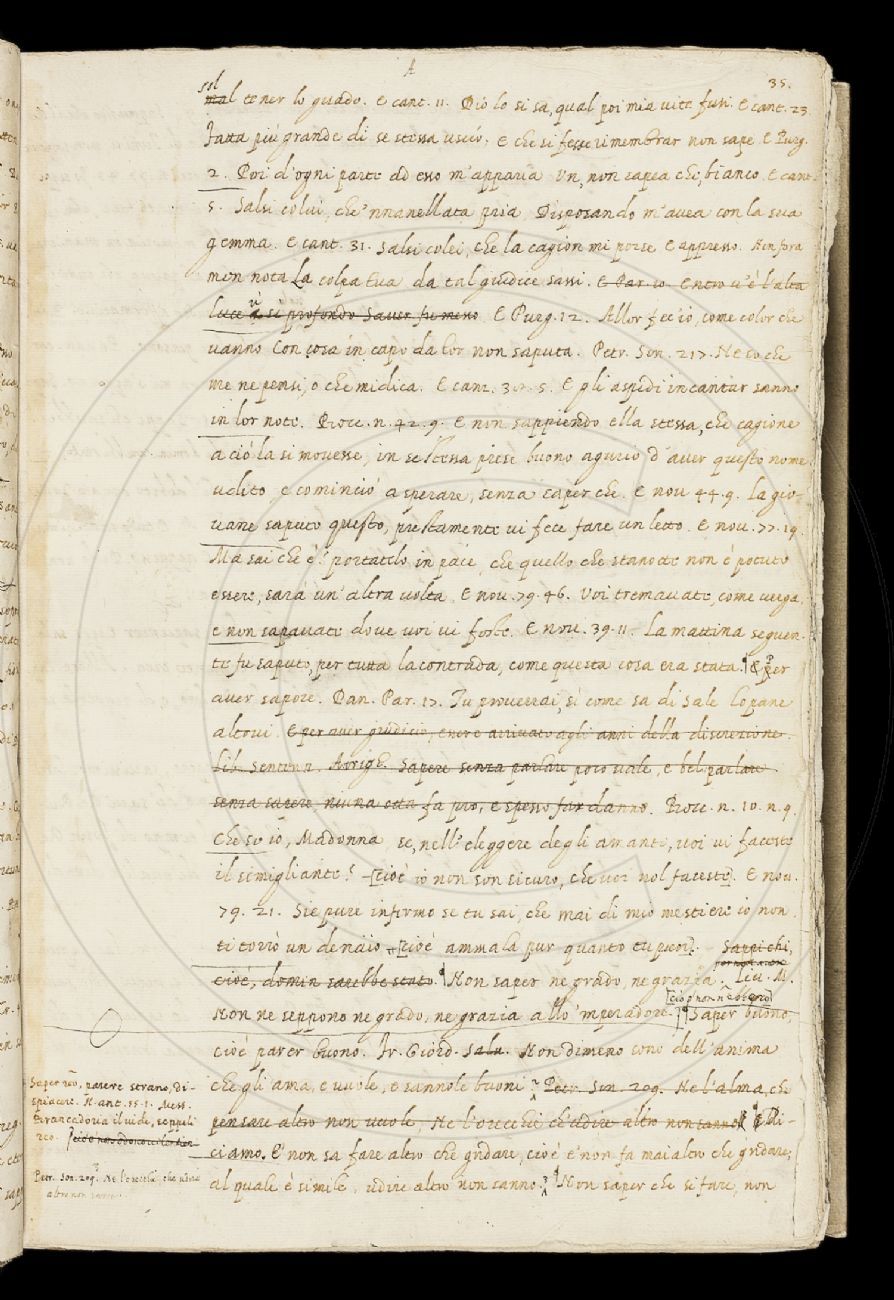 A
35.
sol
mal tener lo guado. E cant. 11. Dio lo si sa, qual poi mia vita fusi. E cant. 23.
Fatta più grande di se stessa uscio, e che si fesse rimembrar non sape. E Purg.
2. Poi d'ogni parte ad esso m'apparia Un, non sapea che, bianco. E cant.
5. Salsi colui, che 'nnanellata pria Disposando m'avea con la sua
gemma. E cant. 31. Salsi colei, che la cagion mi porse. E appresso. Non fora
men nota La colpa tua da tal giudice sassi. E Par. 10. Entro v'è l'alta
luce u' si profondo Saver fu meno E Purg. 12. Allor fec'io, come color che
vanno Con cosa in capo da lor non saputa. Petr. Son. 217. Ne so che
me ne pensi, o che mi dica. E canz. 5. E gli aspidi incantar sanno
in lor note. Bocc. n. 42. 9. E non sappiendo ella stessa, che cagione
a ciò la si movesse, in se stessa prese buono agurio d'aver questo nome
udito, e cominciò a sperare, senza saper che. E nov 44. 9. La gio-
vane saputo questo, prestamente vi fece fare un letto. E nov. 77. 19.
Ma sai che è? portatelo in pace, che quello che stanotte non è potuto
essere, sarà un'altra volta. E nov. 79. 46. Voi tremavate, come verga,
e non sapavate dove voi vi foste. E nov. 39. 11. La mattina seguen-
te fu saputo, per tutta la contrada, come questa cosa era stata. ¶ & per
aver sapore. Dan. Par. 17. Tu proverrai, sì come sa di sale Lo pane
altrui. E per aver giudicio, enere arrivato agli anni della discrezione.
Lib. Sentenz. Arrigh. Sapere senza parlare poco vale, e bel parlare
senza sapere, niuna otta fa pro, e spesso fa danno. Bocc. n. 10. n. 9.
Che so io, Madonna, se, nell'eleggere degli amanti, voi vi faceste
il simigliante? [cioè io non son sicuro, che voi nol faceste]. E nov.
79. 21. Sie pure infermo se tu sai, che mai di mio mestiere io non
ti torrò un denaio [cioè ammala pur quanto tu puoi]. Sappi chi,
cioè, domin sarebbe stato. ¶ Non saper ne grado, ne grazia. Liv. M.
[cioè non n'ebbero]
Non ne seppono ne grado, ne grazia allo 'mperadore. ¶ Saper buono,
cioè parer buono. Fr. Giord. Salv. Nondimeno sono dell'anima
che gli ama, e vuole, e sannole buoni Petr. Son. 209. Ne l'alma, che
pensare altro non vuole, Ne l'orecchie ch'udire altro non sanno ¶ Di-
ciamo. E' non sa fare altro che gridare, cioè e' non fa mai altro che gridare;
al quale è simile, udire altro non sanno. ¶ Non saper che si fare, non
Saper reo, parere strano, di-
spiacere. N. ant. 55. 1. Mess.
il vide, seppeli
reo.
Petr. Son. 209. Ne l'orecchie, che udire
altro non sanno.